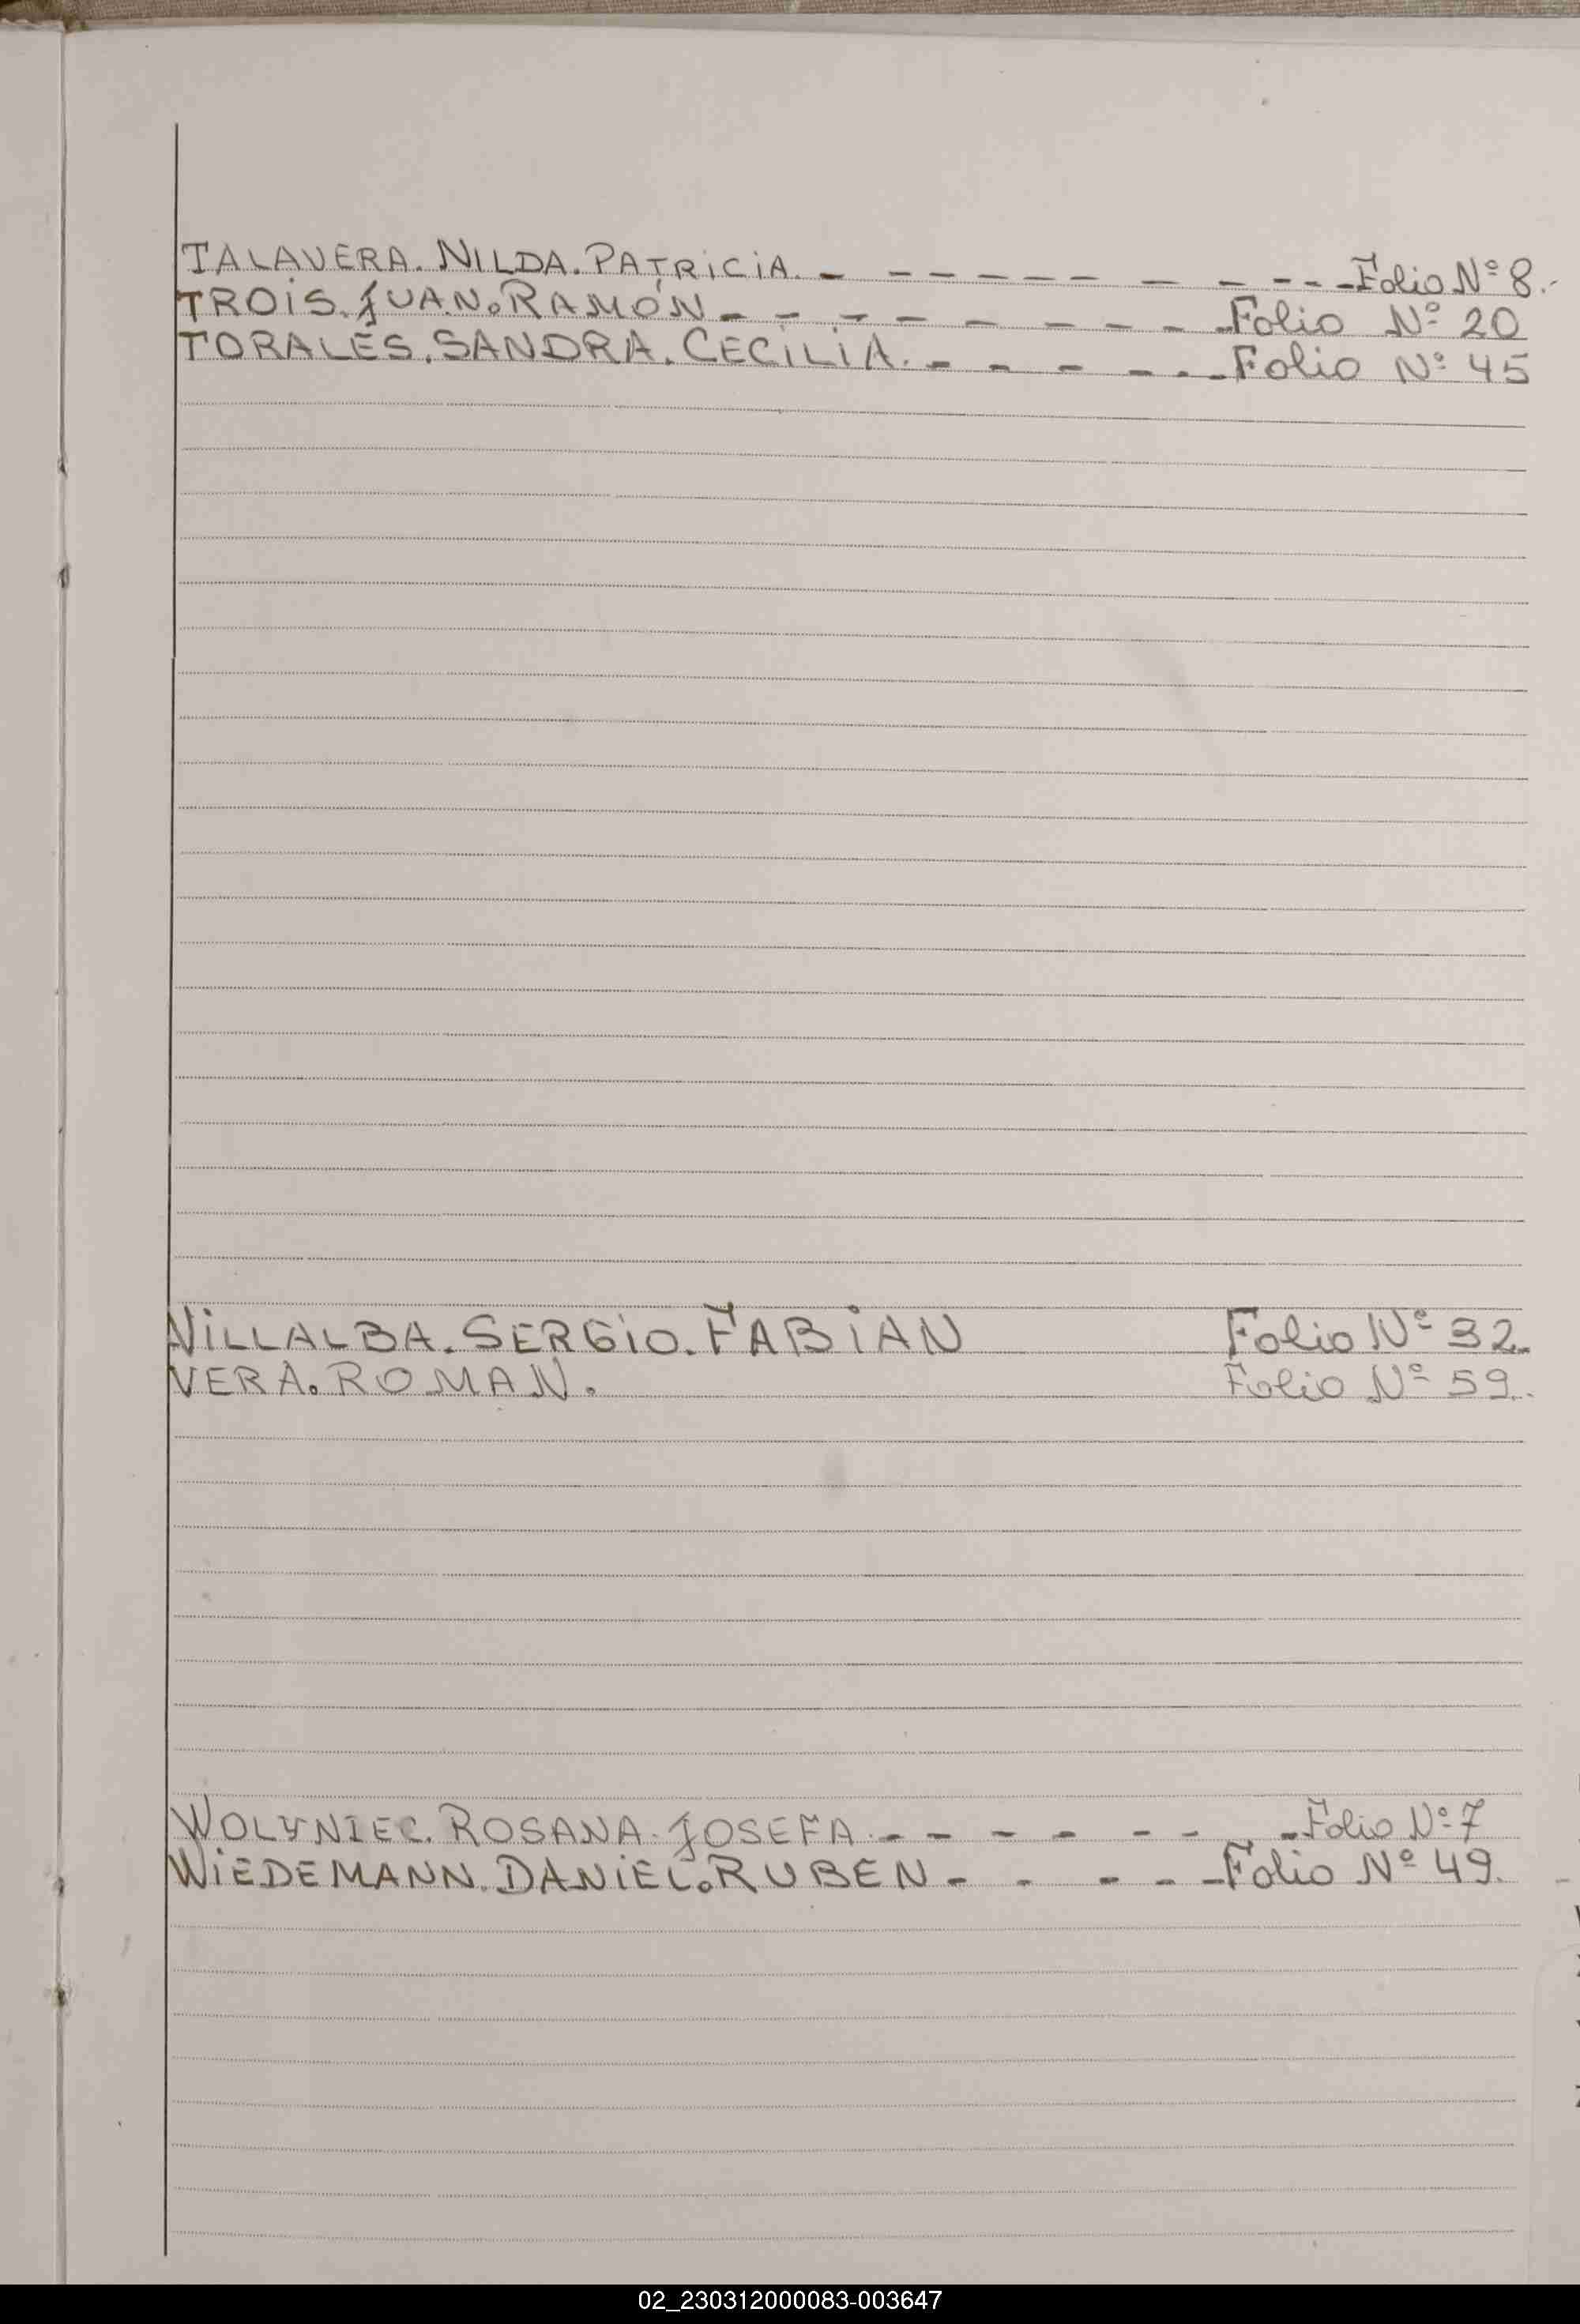 TALAVERA. NILDA. PATRICIA. - - - - - - - - - - - Folio Nº 8.-
TROIS. JUAN. RAMÓN - - - - - - - - - Folio Nº 20
TORALES. SANDRA. CECILIA. - - - - - - Folio Nº 45
VILLALBA. SERGIO. FABIAN Folio Nº 32.
VERA. ROMAN. Folio Nº 59.
WOLYNIEC. ROSANA. JOSEFA. - - - - - - - Folio Nº 7
WIEDEMANN. DANIEL. RUBEN - - - - - Folio Nº 49.
02_230312000083-003647